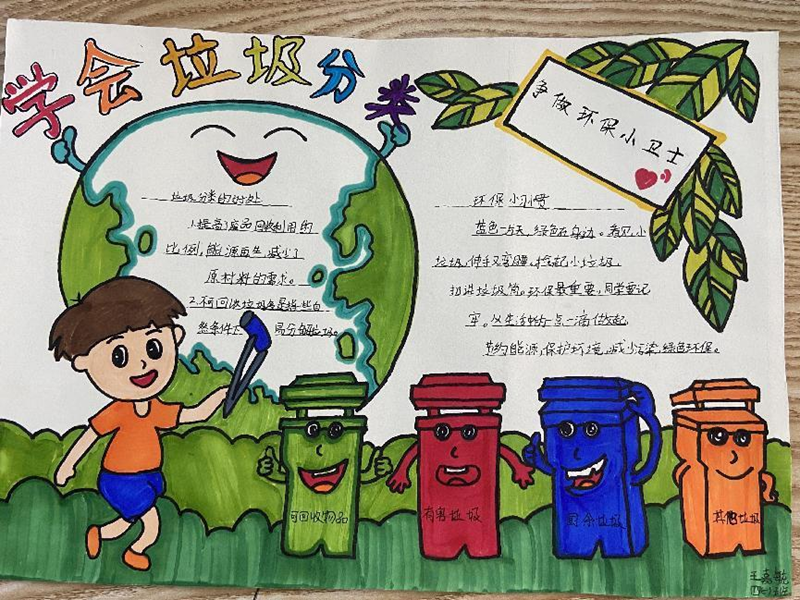 学会垃圾分类
争做环保小卫士
垃圾分类的好处
1.提高了废品回收利用的
比例,能源再生,减少了
原材料的需求。
2.不可回收垃圾是指
易分解垃圾。
环保小习惯
蓝色 天,绿色在身边。看见小
垃圾,伸手又弯腰,捡起小垃圾,
扔进垃圾筒。环保最重要,同学要记
牢。从生活 一点一滴做起
节约能源,保护环境,减少污染,绿色环保。
可回收物品
有害垃圾
厨余垃圾
其他垃圾
王嘉